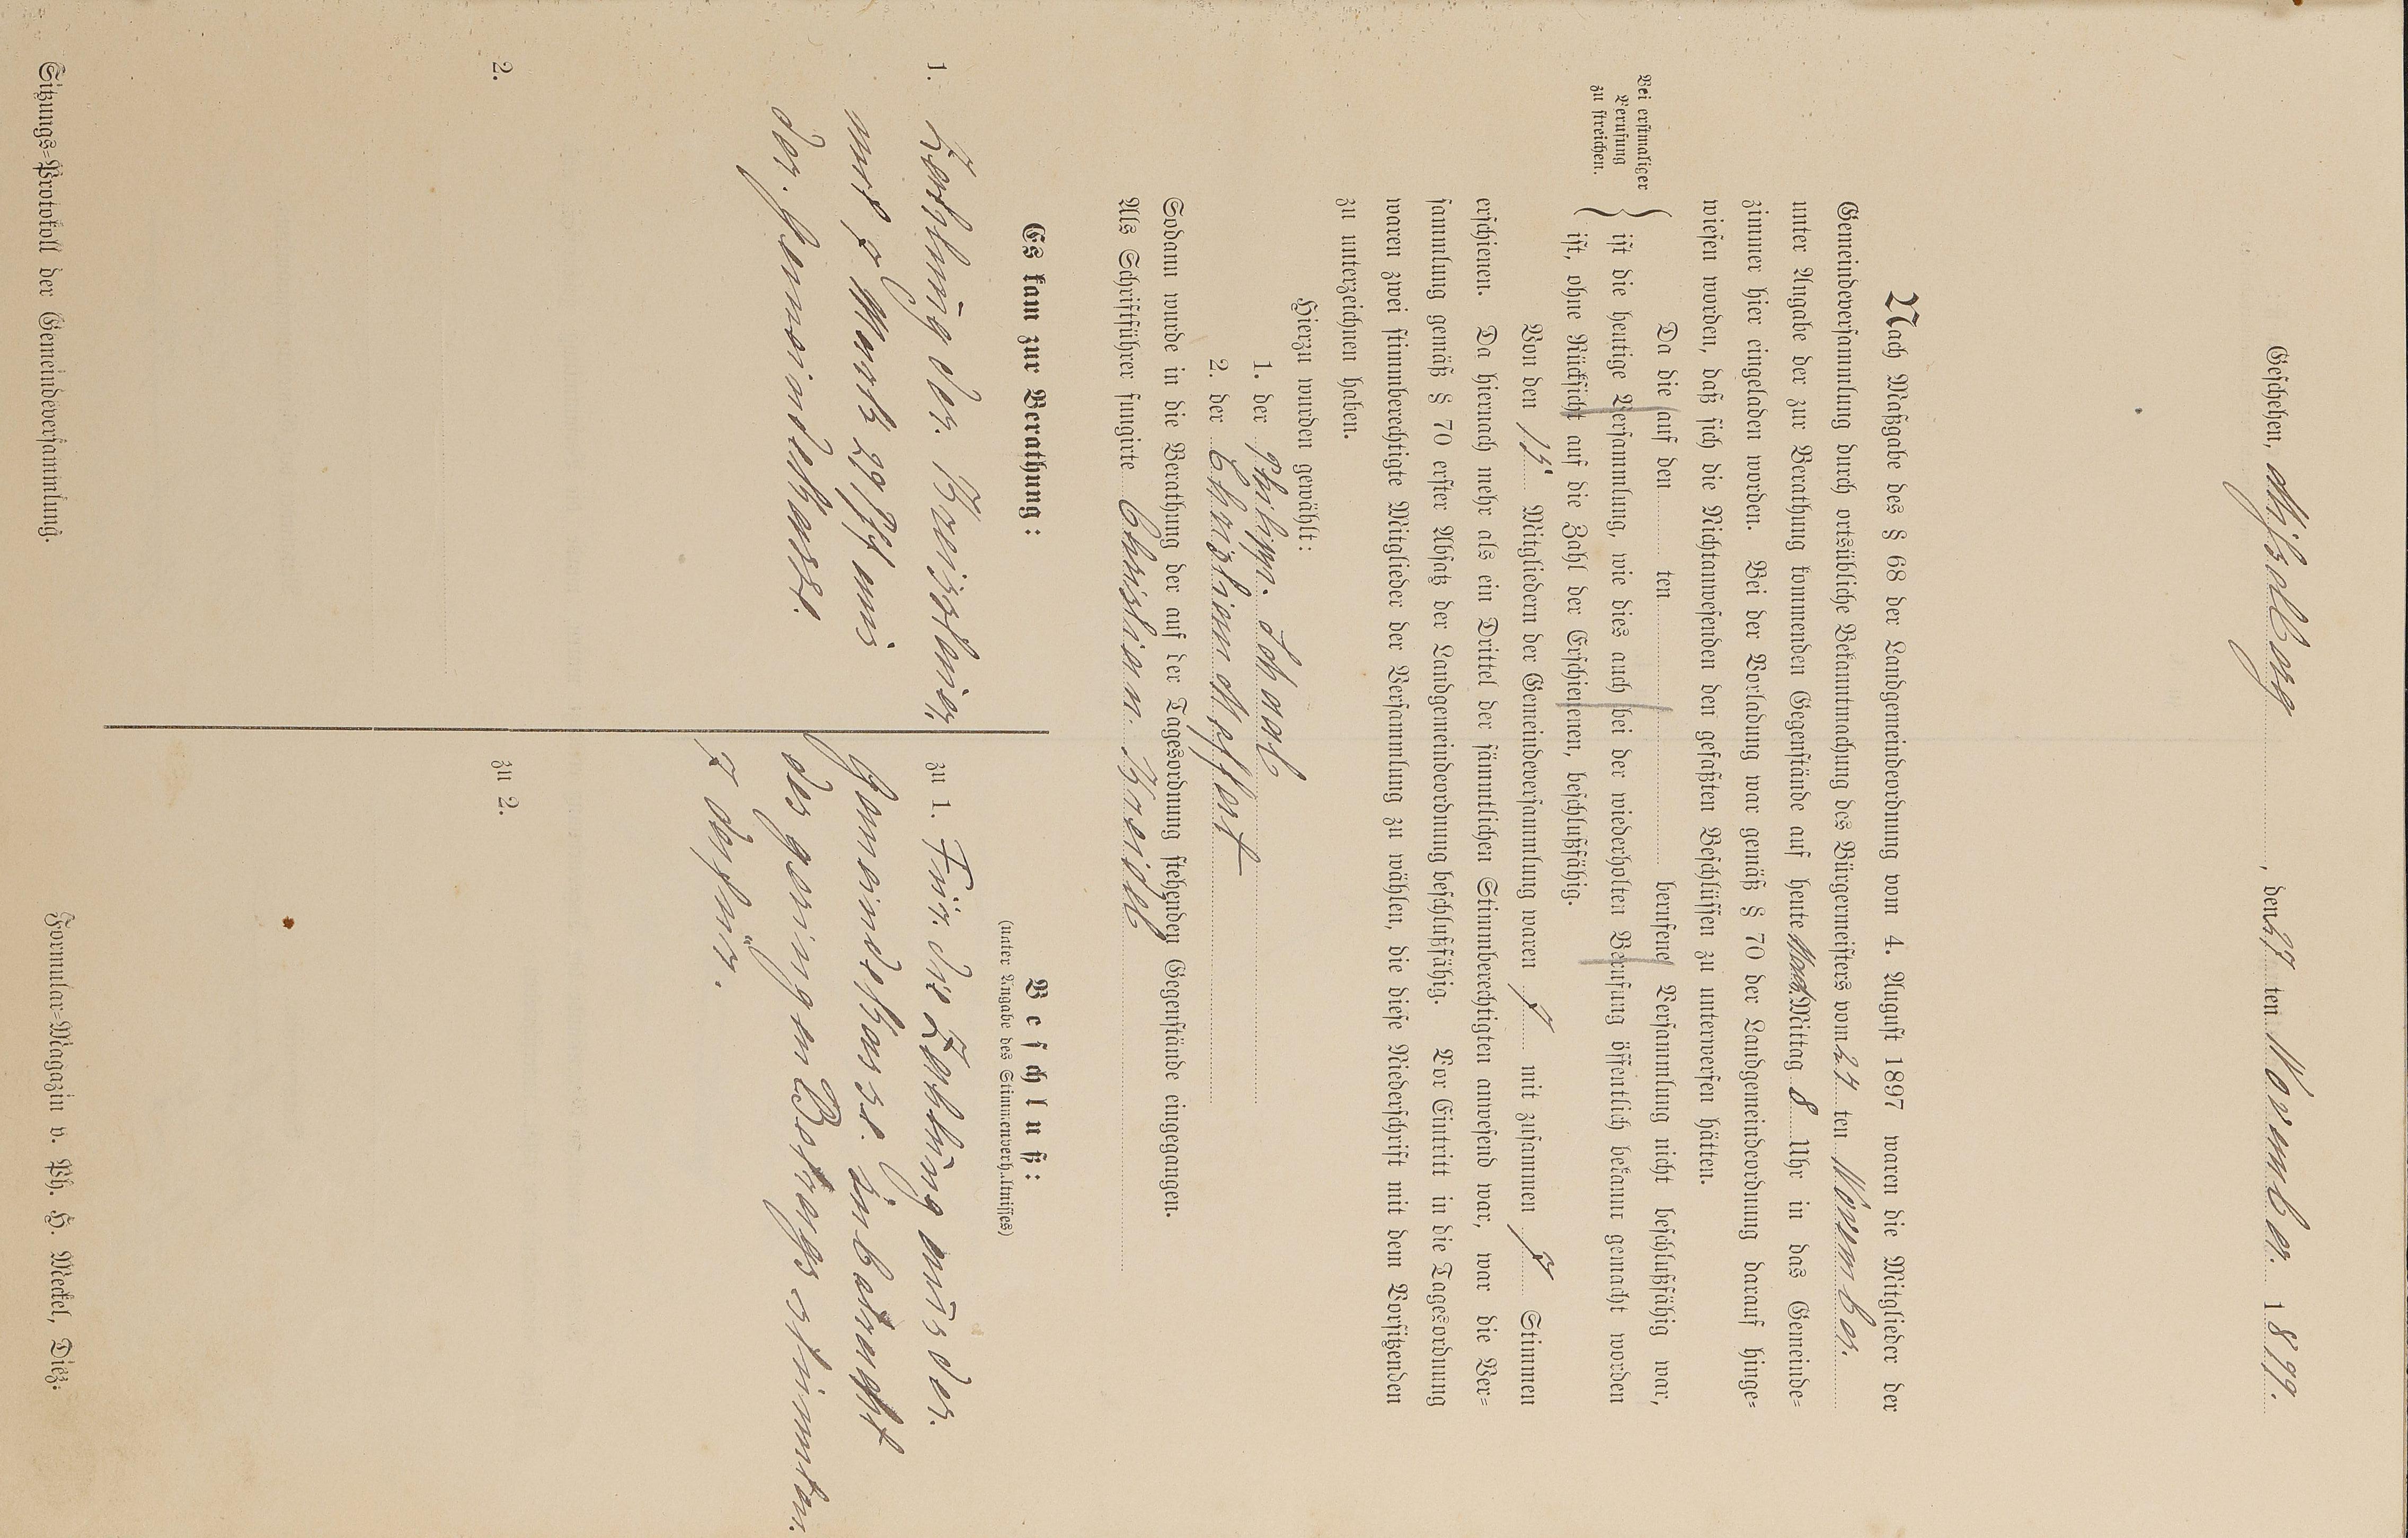 Geschehen, Misselberg, den 27 ten November. 1899.
Nach Maßgabe des § 68 der Landgemeindeordnung vom 4. August 1897 waren die Mitglieder der
Gemeindeversammlung durch ortsübliche Bekanntmachung des Bürgermeisters vom 24 ten November.
unter Angabe der zur Berathung kommenden Gegenstände auf heute Nach Mittag 8 Uhr in das Gemeinde=
zimmer hier eingeladen worden. Bei der Vorladung war gemäß § 70 der Landgemeindeordnung darauf hinge=
wiesen worden, daß sich die Nichtanwesenden den gefaßten Beschlüssen zu unterwerfen hätten.
Bei erstmaliger
Berufung
zu streichen.
Da die auf den ten berufene Versammlung nicht beschlußfähig war,
ist die heutige Versammlung, wie dies auch bei der wiederholten Berufung öffentlich bekannt gemacht worden
ist, ohne Rücksicht auf die Zahl der Erschienenen, beschlußfähig.
Von den 15 Mitgliedern der Gemeindeversammlung waren mit zusammen Stimmen
erschienen. Da hiernach mehr als ein Drittel der sämmtlichen Stimmberechtigten anwesend war, war die Ver=
sammlung gemäß § 70 erster Absatz der Landgemeindeordnung beschlußfähig. Vor Eintritt in die Tagesordnung
waren zwei stimmberechtigte Mitglieder der Versammlung zu wählen, die diese Niederschrift mit dem Vorsitzenden
zu unterzeichnen haben.
Hierzu wurden gewählt:
1. der Philipp.
2. der Christian
Sodann wurde in die Berathung der auf der Tagesordnung stehenden Gegenstände eingegangen.
Als Schriftführer fungirte Christian.
Es kam zur Berathung:
Beschluß:
(unter Angabe des Stimmenverhältnisses)
1. Zahlung der. Kreissteuer
mit 7 Mark 29 Pf aus
der. Gemeindekasse.
zu 1. Für die Zahlung aus der.
Gemeindekasse. in betracht
des geringen Betrages stimmten
7 dafür.
2.
zu 2.
Sitzungs=Protokoll der Gemeindeversammlung.
Formular=Magazin v. Ph. H. Meckel, Diez.